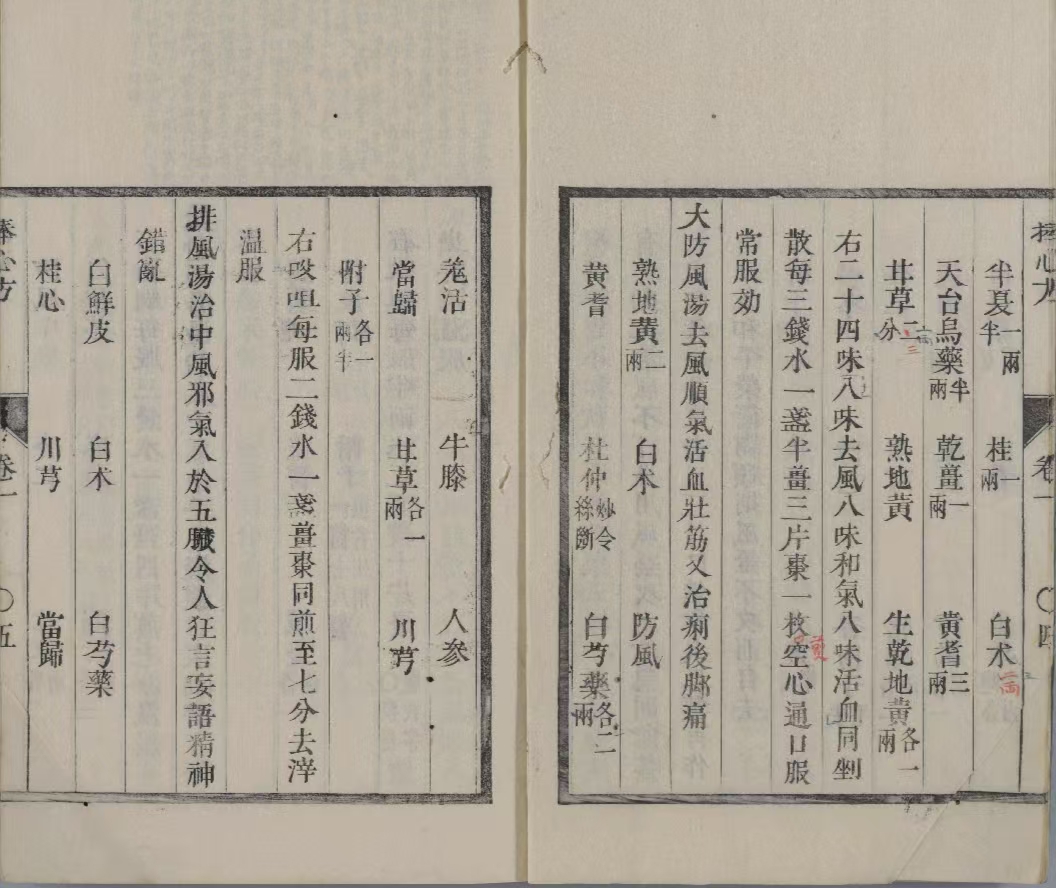 半夏一兩半 桂一兩 白术二両
天台烏藥半兩 乾薑一兩 黃耆三兩
甘草二分 熟地黃 生乾地黃各一兩
右二十四味八味去風八味和氣八味活血同剉
散每三錢水一盞半薑三片棗一枚空心通口服
常服効
大防風湯去風順氣活血壯筋又治痢後脚痛
熟地黃二兩 白术 防風
黃耆 杜仲炒令絲斷 白芍藥各二兩
卷一
羗活 牛膝 人參
當歸 甘草各一兩 川芎
附子各一兩半
右㕮咀每服二錢水一盞薑棗同煎至七分去滓
温服
排風湯治中風邪氣入於五臟令人狂言妄語精神
錯亂
白鮮皮 白术 白芍藥
桂心 川芎 當歸
卷一
五